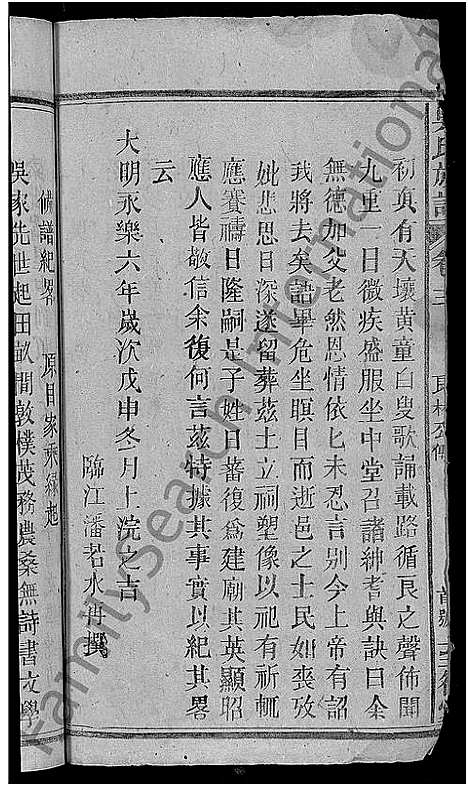 吳氏族譜 卷三
初頂有天壤黃童白叟歌誦載路循良之聲佈聞
九重一日微疾盛服坐中堂召諸紳耆與訣曰余
無德加父老然恩情依匕未忍言别今上帝有詔
我將去矣語畢危坐瞑目而逝邑之士民如喪攷
妣悲思日深遂留葬茲土立祠塑像以祀有祈輒
應賽禱日隆嗣是子姓日蕃復爲建廟其英顯昭
應人皆敬信余復何言茲特據其事實以紀其畧
云
大明永樂六年歲次戊申冬月上浣之吉
臨江潘若水拜撰
修譜紀畧 原目家乘緣起
吳家先世起田畝間敦樸茂務農桑無詩書文學
FamilySearch International